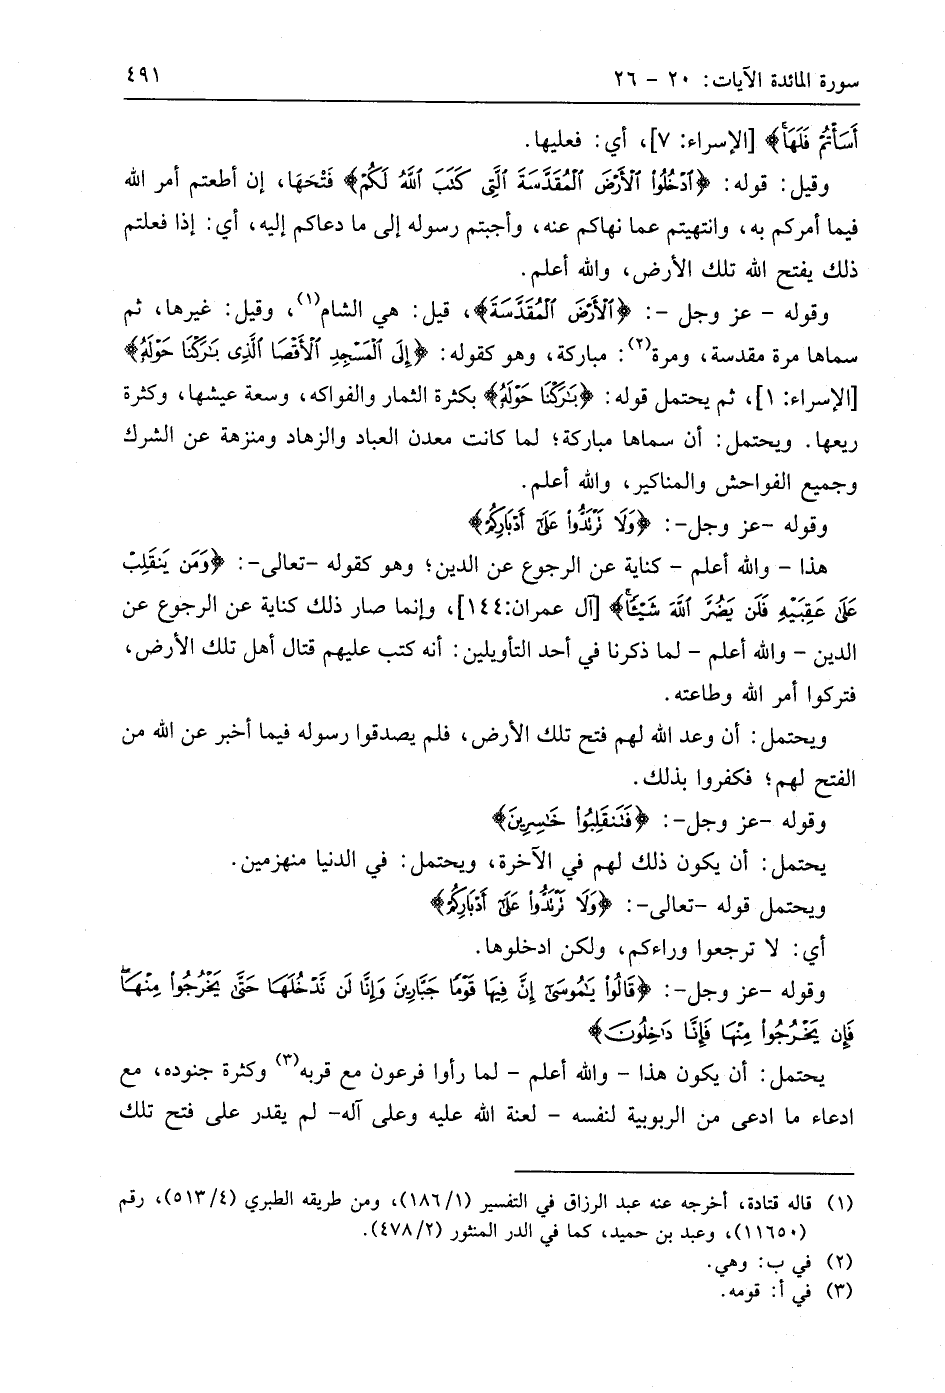 سورة المائدة الآيات: ٢٠ - ٢٦ ٤٩١
أَسَأْتُمْ فَلَهَا﴾ [الإسراء: ٧]، أي: فعليها.
وقيل: قوله: ﴿ٱدْخُلُوا۟ ٱلْأَرْضَ ٱلْمُقَدَّسَةَ ٱلَّتِى كَتَبَ ٱللَّهُ لَكُمْ﴾ فَتْحَهَا، إن أطعتم أمر الله
فيما أمركم به، وانتهيتم عما نهاكم عنه، وأجبتم رسوله إلى ما دعاكم إليه، أي: إذا فعلتم
ذلك يفتح الله تلك الأرض، والله أعلم.
وقوله - عز وجل -: ﴿ٱلْأَرْضَ ٱلْمُقَدَّسَةَ﴾، قيل: هي الشام(١)، وقيل: غيرها، ثم
سماها مرة مقدسة، ومرة(٢): مباركة، وهو كقوله: ﴿إِلَى ٱلْمَسْجِدِ ٱلْأَقْصَا ٱلَّذِى بَٰرَكْنَا حَوْلَهُۥ﴾
[الإسراء: ١]، ثم يحتمل قوله: ﴿بَٰرَكْنَا حَوْلَهُۥ﴾ بكثرة الثمار والفواكه، وسعة عيشها، وكثرة
ريعها. ويحتمل: أن سماها مباركة؛ لما كانت معدن العباد والزهاد ومنزهة عن الشرك
وجميع الفواحش والمناكير، والله أعلم.
وقوله -عز وجل-: ﴿وَلَا تَرْتَدُّوا۟ عَلَىٰٓ أَدْبَارِكُمْ﴾
هذا - والله أعلم - كناية عن الرجوع عن الدين؛ وهو كقوله -تعالى-: ﴿وَمَن يَنقَلِبْ
عَلَىٰ عَقِبَيْهِ فَلَن يَضُرَّ ٱللَّهَ شَيْـًٔا﴾ [آل عمران:١٤٤]، وإنما صار ذلك كناية عن الرجوع عن
الدين - والله أعلم - لما ذكرنا في أحد التأويلين: أنه كتب عليهم قتال أهل تلك الأرض،
فتركوا أمر الله وطاعته.
ويحتمل: أن وعد الله لهم فتح تلك الأرض، فلم يصدقوا رسوله فيما أخبر عن الله من
الفتح لهم؛ فكفروا بذلك.
وقوله -عز وجل-: ﴿فَتَنقَلِبُوا۟ خَٰسِرِينَ﴾
يحتمل: أن يكون ذلك لهم في الآخرة، ويحتمل: في الدنيا منهزمين.
ويحتمل قوله -تعالى-: ﴿وَلَا تَرْتَدُّوا۟ عَلَىٰٓ أَدْبَارِكُمْ﴾
أي: لا ترجعوا وراءكم، ولكن ادخلوها.
وقوله -عز وجل-: ﴿قَالُوا۟ يَٰمُوسَىٰٓ إِنَّ فِيهَا قَوْمًا جَبَّارِينَ وَإِنَّا لَن نَّدْخُلَهَا حَتَّىٰ يَخْرُجُوا۟ مِنْهَا
فَإِن يَخْرُجُوا۟ مِنْهَا فَإِنَّا دَٰخِلُونَ﴾
يحتمل: أن يكون هذا - والله أعلم - لما رأوا فرعون مع قربه(٣) وكثرة جنوده، مع
ادعاء ما ادعى من الربوبية لنفسه - لعنة الله عليه وعلى آله- لم يقدر على فتح تلك
(١) قاله قتادة، أخرجه عنه عبد الرزاق في التفسير (١/ ١٨٦)، ومن طريقه الطبري (٤/ ٥١٣)، رقم
(١١٦٥٠)، وعبد بن حميد، كما في الدر المنثور (٢/ ٤٧٨).
(٢) في ب: وهي.
(٣) في أ: قومه.